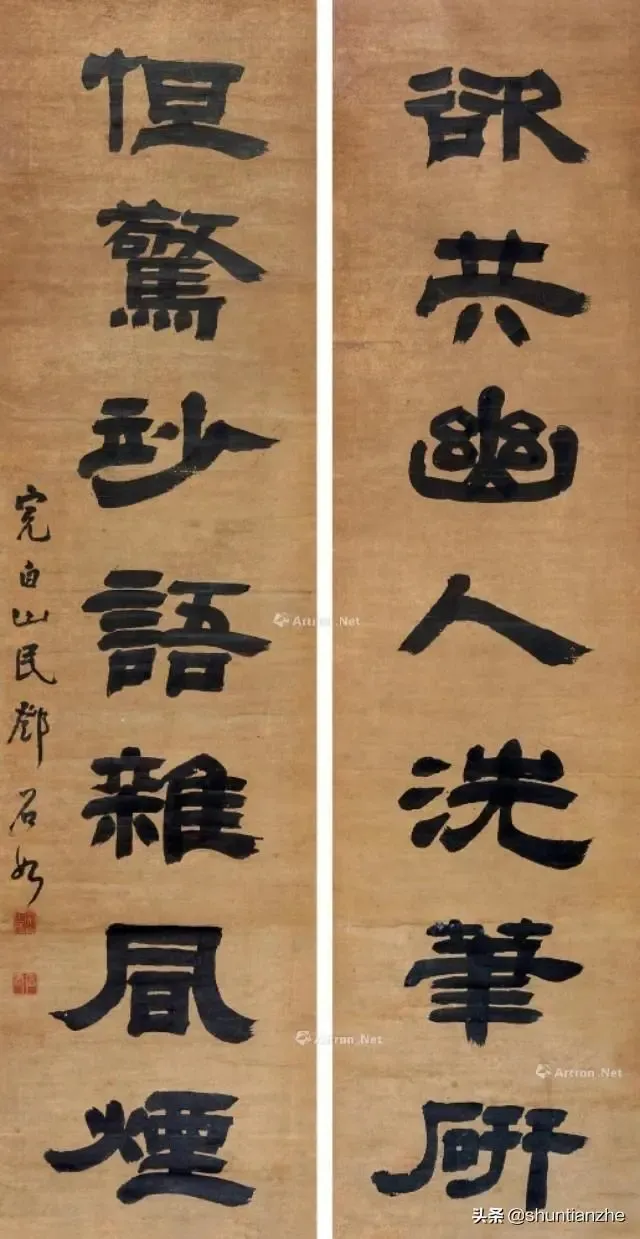 欲共幽人洗筆研
但驚妙語雜風煙
完白山民鄧石如
Artron.Net
Artron.Net
Artron.Net
头条 @shuntianzhe